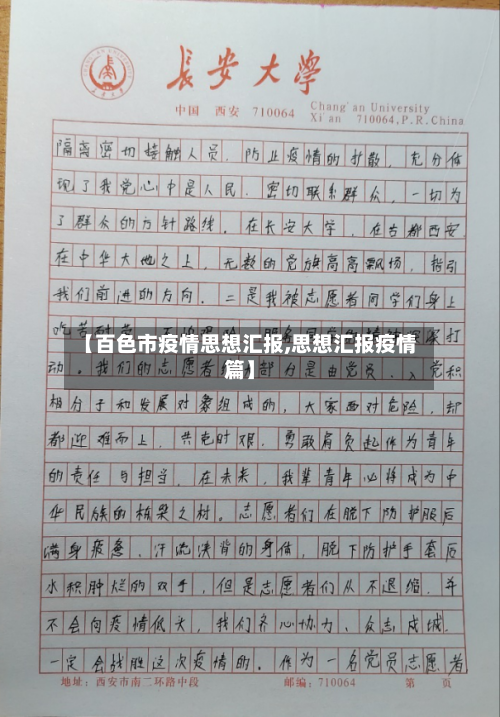 长安大学
中国 西安 710064 Chang'an University
Xi'an 710064,P.R.China
隔离密切接触人员,防止疫情的扩散,充分体
现了我党心中是人民,密切联系群众,一切为
了群众的方针路线。在长安大学,在古都西安
在中华大地之上,无数的党旗高高飘扬,指引
我们前进的方向。二是我被志愿者同学们身上
打
【百色市疫情思想汇报,思想汇报疫情
篇】
动。我们的志愿者 部分是由党员、入党积
极分子和发展对象组成的,大家面对危险,却
都迎难而上,共克时艰,勇敢肩负起作为青年
的责任与担当,在未来,我辈青年必将成为中
华民族的栋梁之材。志愿者们在脱下防护服后
满身疲惫,汗流浃背的身体,脱下防护手套后
水积肿烂的双手,但是志愿者们从不退缩,并
不会向疫情低头,我们齐心协力、众志成城,
一定会战胜这次疫情的。作为一名党员志愿者
地址:西安市南二环路中段 邮编:710064 第 页